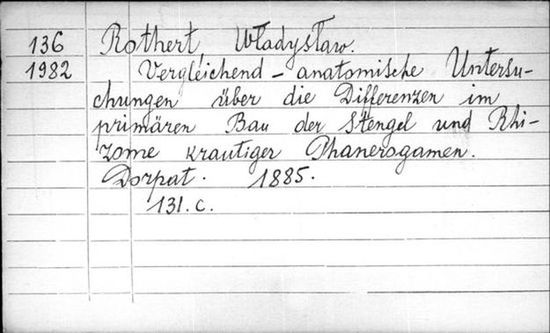 136 Rothert, Władysław.
1982 Vergleichend-anatomische Untersu-
chungen über die Differenzen im
primären Bau der Stengel und Rhi-
zome krautiger Phanerogamen.
Dorpat. 1885.
131.c.